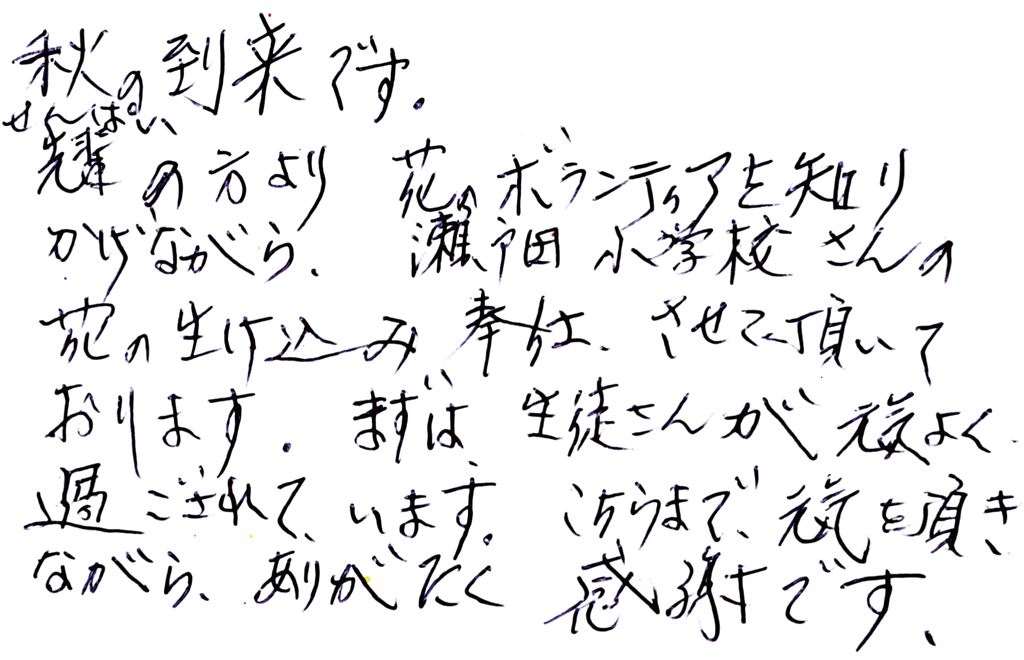 秋の到来です。
せんぱい
先輩の方より 花のボランティアを知り
かけながら、 瀬田小学校さんの
花の生け込み奉仕、させて頂いて
おります。まずは生徒さんが元気よく
過ごされています。こちらまで、元気を頂き
ながら、ありがたく 感謝です、